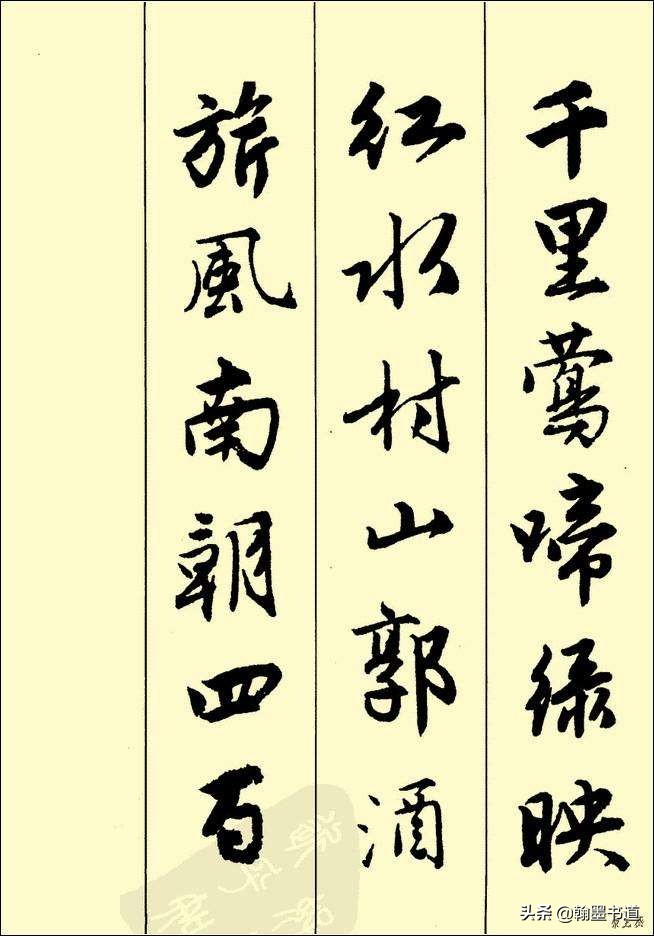 千里鶯啼綠映
紅水村山郭酒
旂風南朝四百
头条 @翰墨书道